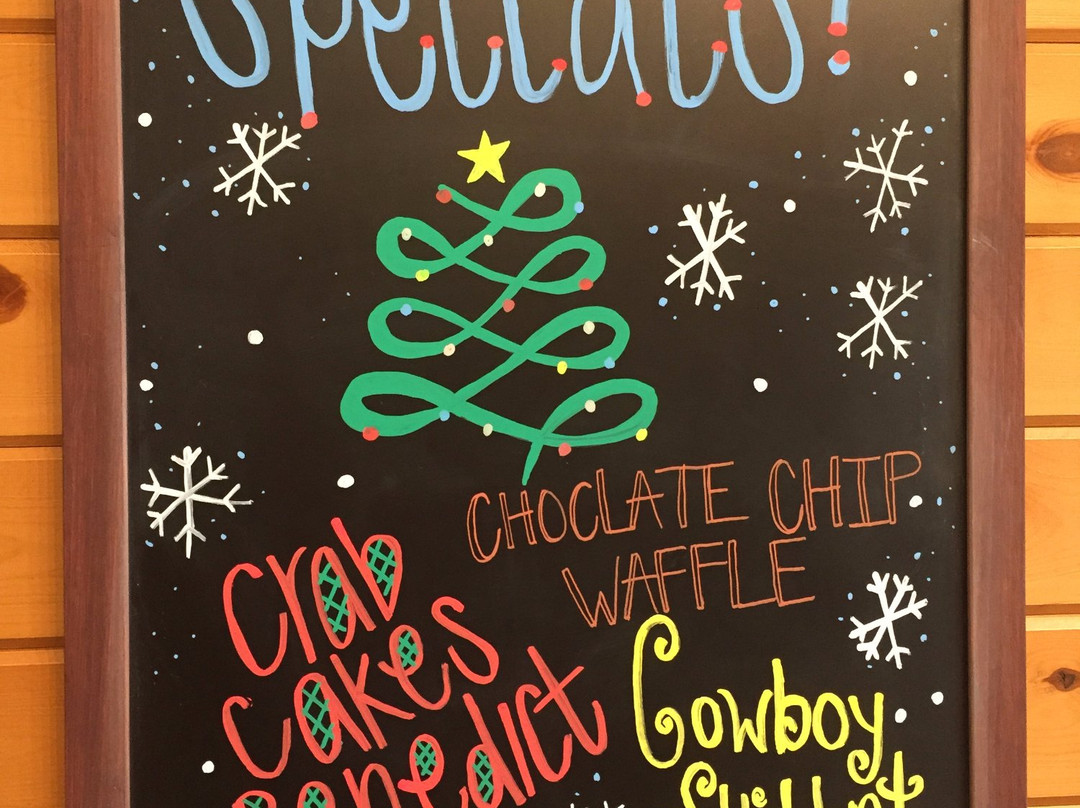 Specials!
CHOCLATE CHIP
WAFFLE
Crab
Cakes
Benedict
Cowboy
Skillet